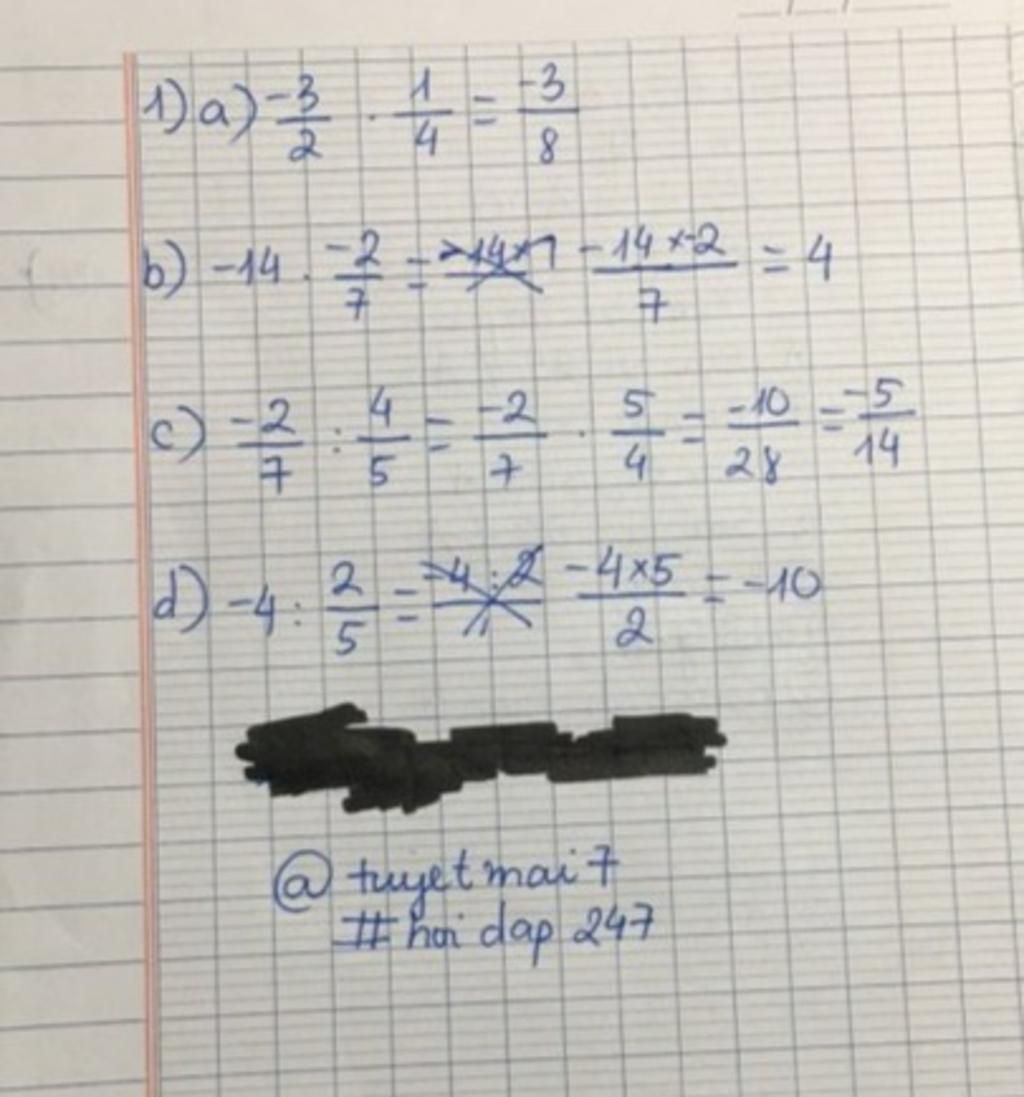 1) a) -3/2 . 1/4 = -3/8
b) -14 . -2/7 = -14 x -2/7 = 4
c) -2/7 : 4/5 = -2/7 . 5/4 = -10/28 = -5/14
d) -4 : 2/5 = -4x5/2 = -10
@ tuyetmai7
# hoi dap 247